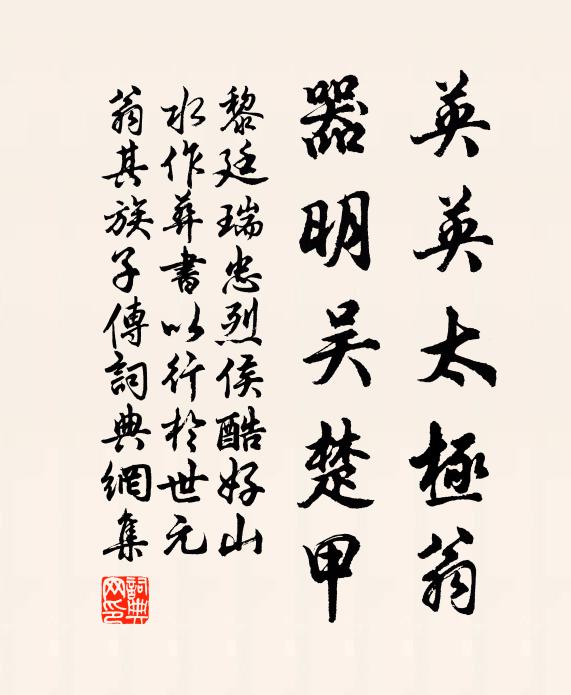 英英太極翁
器明吴楚甲
黎廷瑞忠烈侯酷好山
水作葬書以行於世元
翁其族子傳詞典網集
詞典
网印